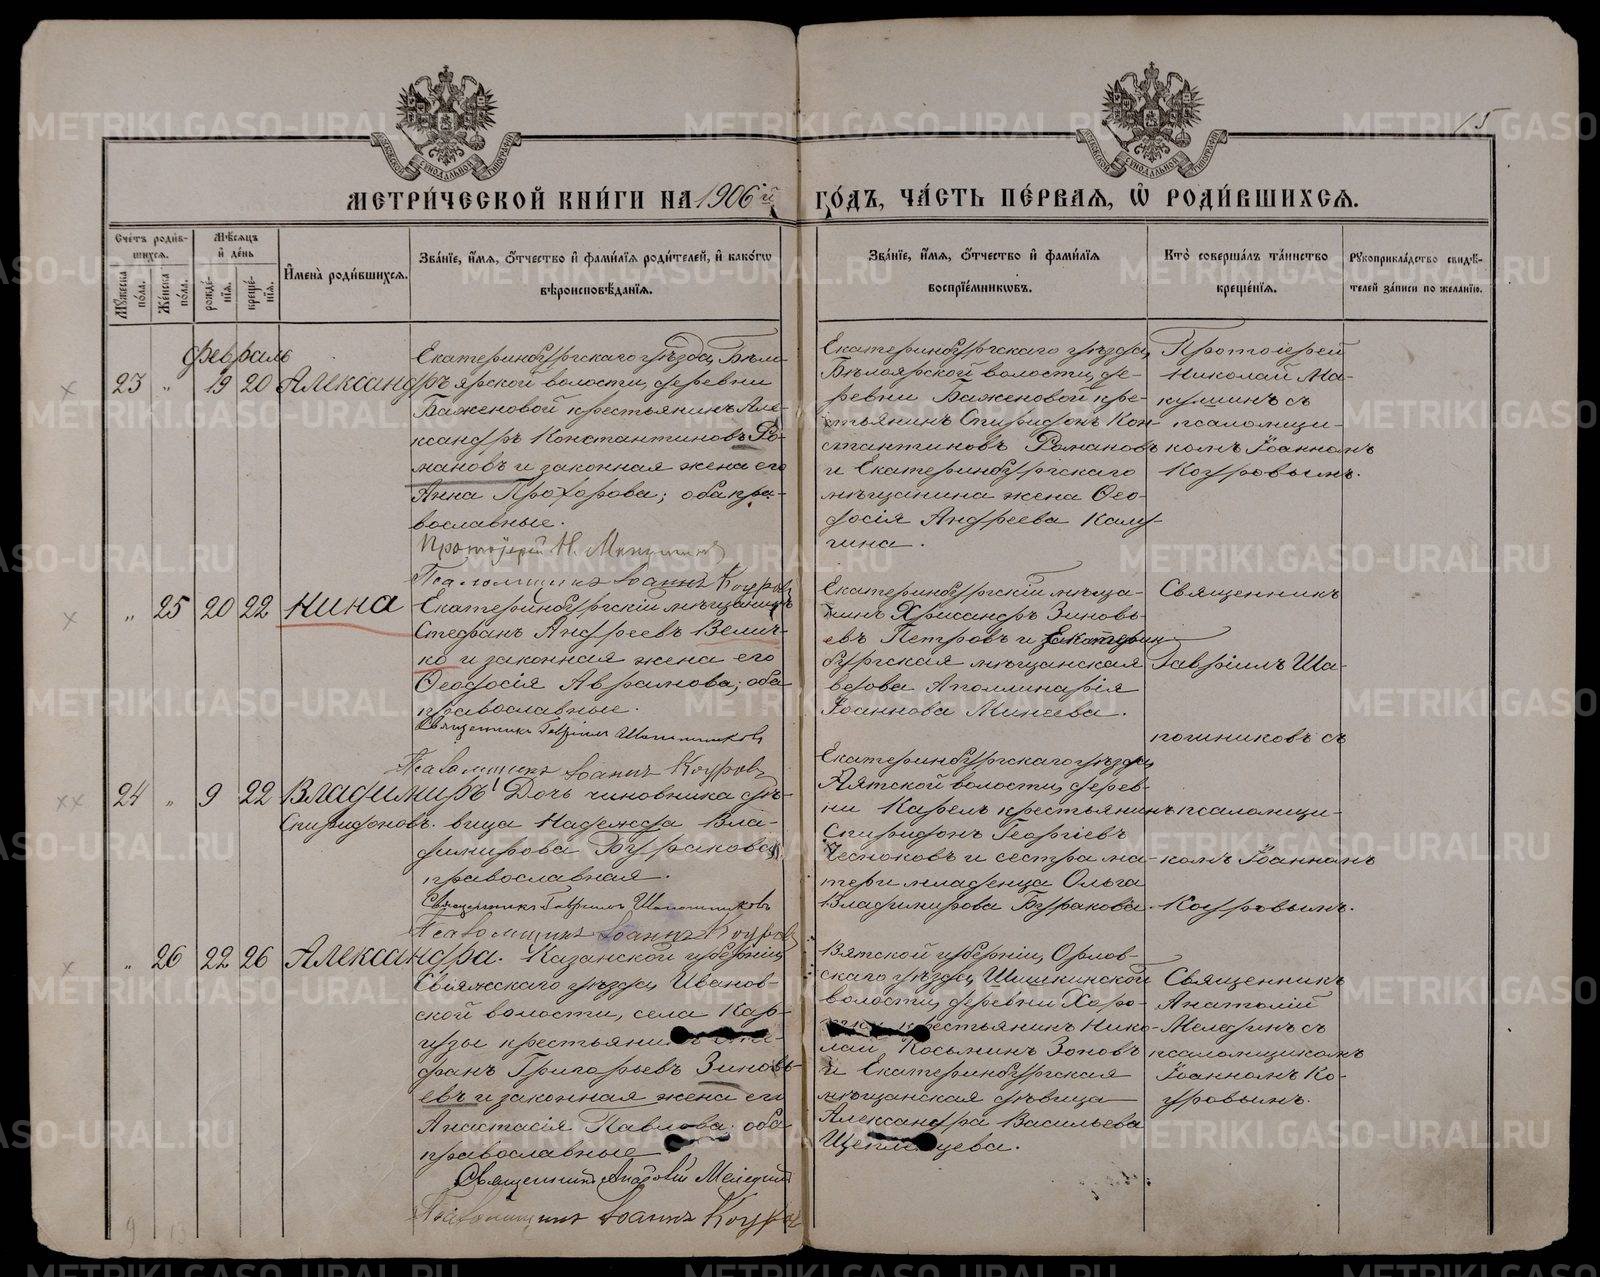 15
МЕТРИ́ЧЕСКОЙ КНИ́ГИ НА 1906й ГО́ДЪ, ЧА́СТЬ ПЕ́РВАѦ, Ѡ҆ РОДИ́ВШИХСѦ.
Сче́тъ роди́в-
шихсѧ.
Мꙋ́жеска по́ла.
Же́нска по́ла.
Мѣ́сѧцъ
и҆ де́нь
рожде́-
нїѧ.
креще́-
нїѧ.
И҆мена̀ роди́вшихсѧ.
Зва́нїе, и҆́мѧ, ѻ҆́тчество и҆ фами́лїѧ роди́телей, и҆ како́гѡ
вѣроисповѣ́данїѧ.
Зва́нїе, и҆́мѧ, ѻ҆́тчество и҆ фами́лїѧ
воспрїе́мникѡвъ.
Кто̀ соверша́лъ та́инство
креще́нїѧ.
Рꙋкоприкла́дство свидѣ́-
телей за́писи по жела́нїю.
Февраль
23 „ 19 20 Александръ
Екатеринбургскаго уѣзда, Бѣло-
ярской волости, деревни
Баженовой крестьянинъ Але-
ксандръ Константиновъ Ро-
мановъ и законная жена его
Анна Прохорова; оба пра-
вославные.
Протоіерей Н. Макушинъ
Псаломщикъ Іоаннъ Коуровъ
Екатеринбургскаго уѣзда,
Бѣлоярской волости, де-
ревни Баженовой кре-
стьянинъ Спиридонъ Кон-
стантиновъ Романовъ
и Екатеринбургскаго
мѣщанина жена Ѳео-
досія Андреева Калу-
гина.
Протоіерей
Николай Ма-
кушинъ съ
псаломщи-
комъ Іоанномъ
Коуровымъ.
„ 25 20 22 Нина
Екатеринбургскій мѣщанинъ
Стефанъ Андреевъ Велич-
ко и законная жена его
Ѳеодосія Аврамова; оба
православные.
Священникъ Гавріилъ Шапошниковъ
Псаломщикъ Іоаннъ Коуровъ
Екатеринбургскій мѣща-
нинъ Хрисанфъ Зиновь-
евъ Петровъ и Екатерин-
бургская мѣщанская
Аполлинарія
Іоаннова Минеева.
Священникъ
Гавріилъ Ша-
пошниковъ съ
24 „ 9 22 Владимиръ
Спиридоновъ.
Дочь чиновника дѣ-
вица Надежда Вла-
димирова Буракова,
православная.
Священникъ Гавріилъ Шапошниковъ
Псаломщикъ Іоаннъ Коуровъ
Екатеринбургскаго уѣзда,
Аятской волости, дерев-
ни Карель крестьянинъ
Спиридонъ Георгіевъ
Чесноковъ и сестра ма-
тери младенца Ольга
Владимирова Буракова.
псаломщи-
комъ Іоанномъ
Коуровымъ.
„ 26 22 26 Александра.
Казанской губерніи,
Свіяжскаго уѣзда, Иванов-
ской волости, села
крестьянинъ Сте-
фанъ Григорьевъ Зиновь-
евъ и законная жена его
Анастасія Павлова; оба
православные
Священникъ Анатолій Мелединъ
Псаломщикъ Іоаннъ Коуровъ
Вятской губерніи, Орлов-
скаго уѣзда, Шишкинской
волости, деревни
крестьянинъ Нико-
лай Косьминъ Зоновъ
и Екатеринбургская
мѣщанская дѣвица
Александра Васильева
Священникъ
Анатолій
Мелединъ съ
псаломщикомъ
Іоанномъ Ко-
уровымъ.
METRIKI.GASO-URAL.RU